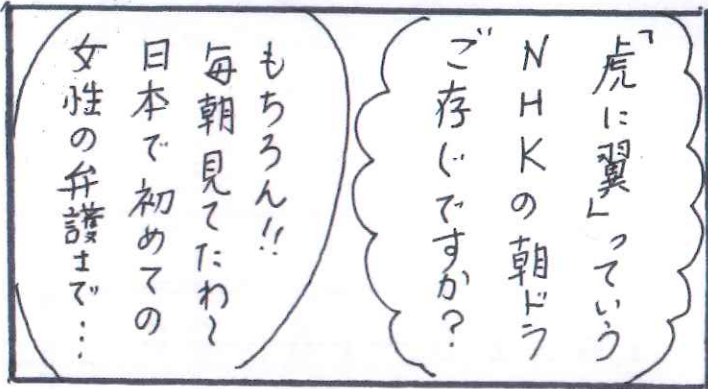 「虎に翼」っていう
NHKの朝ドラ
ご存じですか?
もちろん!!
毎朝見てたわ〜
日本で初めての
女性の弁護士で…